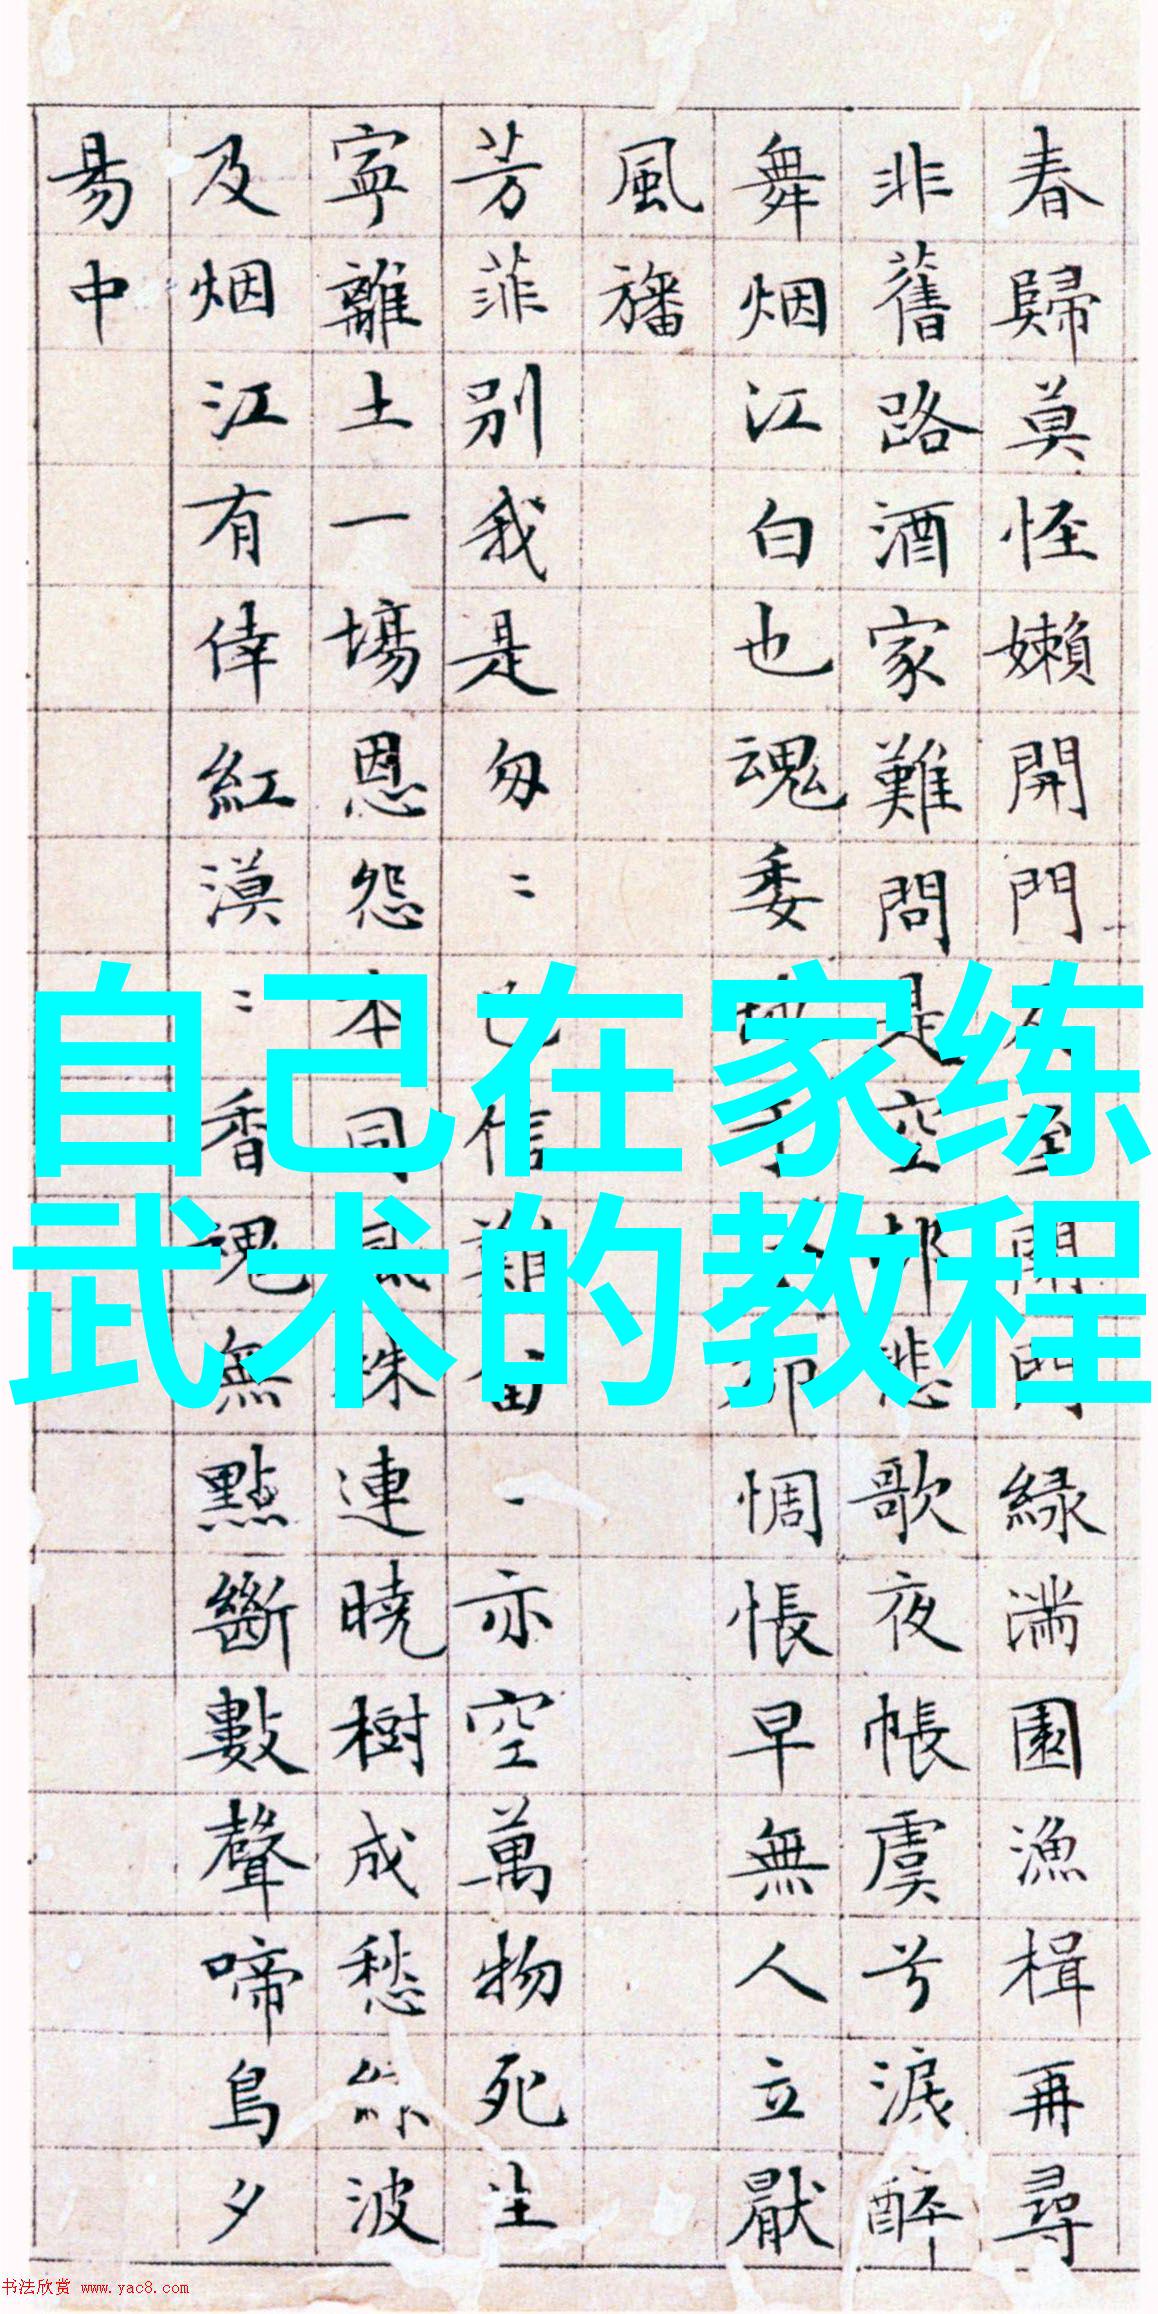 春歸莫怪嬾開門及至開門緑满園漁楫再尋
非舊路酒家難問是空邨悲歌夜帳虞兮淚醉
舞烟江白也魂委地于今却惆悵早無人立厭
風旛
芳菲別我是匆〻已信難留一亦空萬物死生
寧離土一場恩怨本同風株連曉樹成愁綠波
及烟江有倖紅漠〻香魂無點斷數聲啼鳥夕
易中
自己在家练
武术的教程
书法欣赏 www.yac8.com